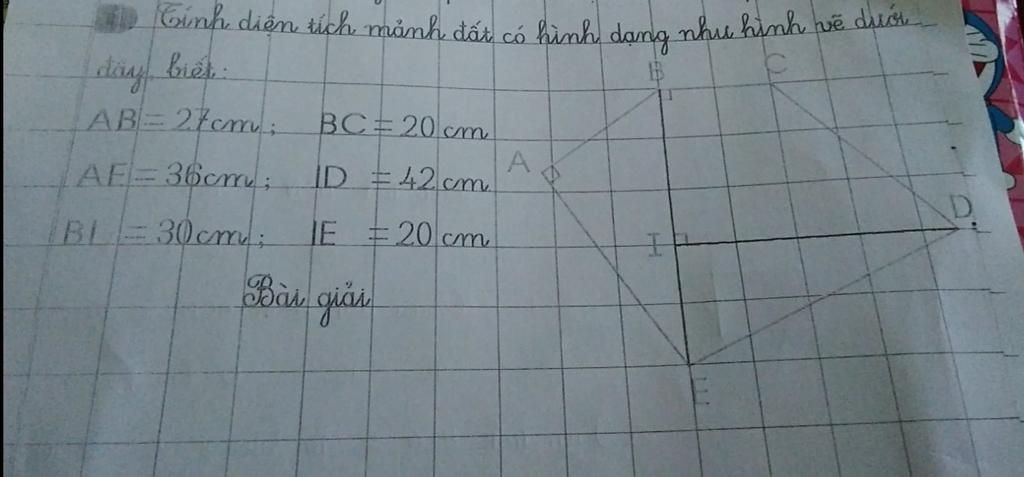 Tính diện tích mảnh đất có hình dạng như hình vẽ dưới
đây biết:
AB = 27cm; BC = 20cm
AE = 36cm; ID = 42cm
BI = 30cm; IE = 20cm
Bài giải
B C
A
D
I
E